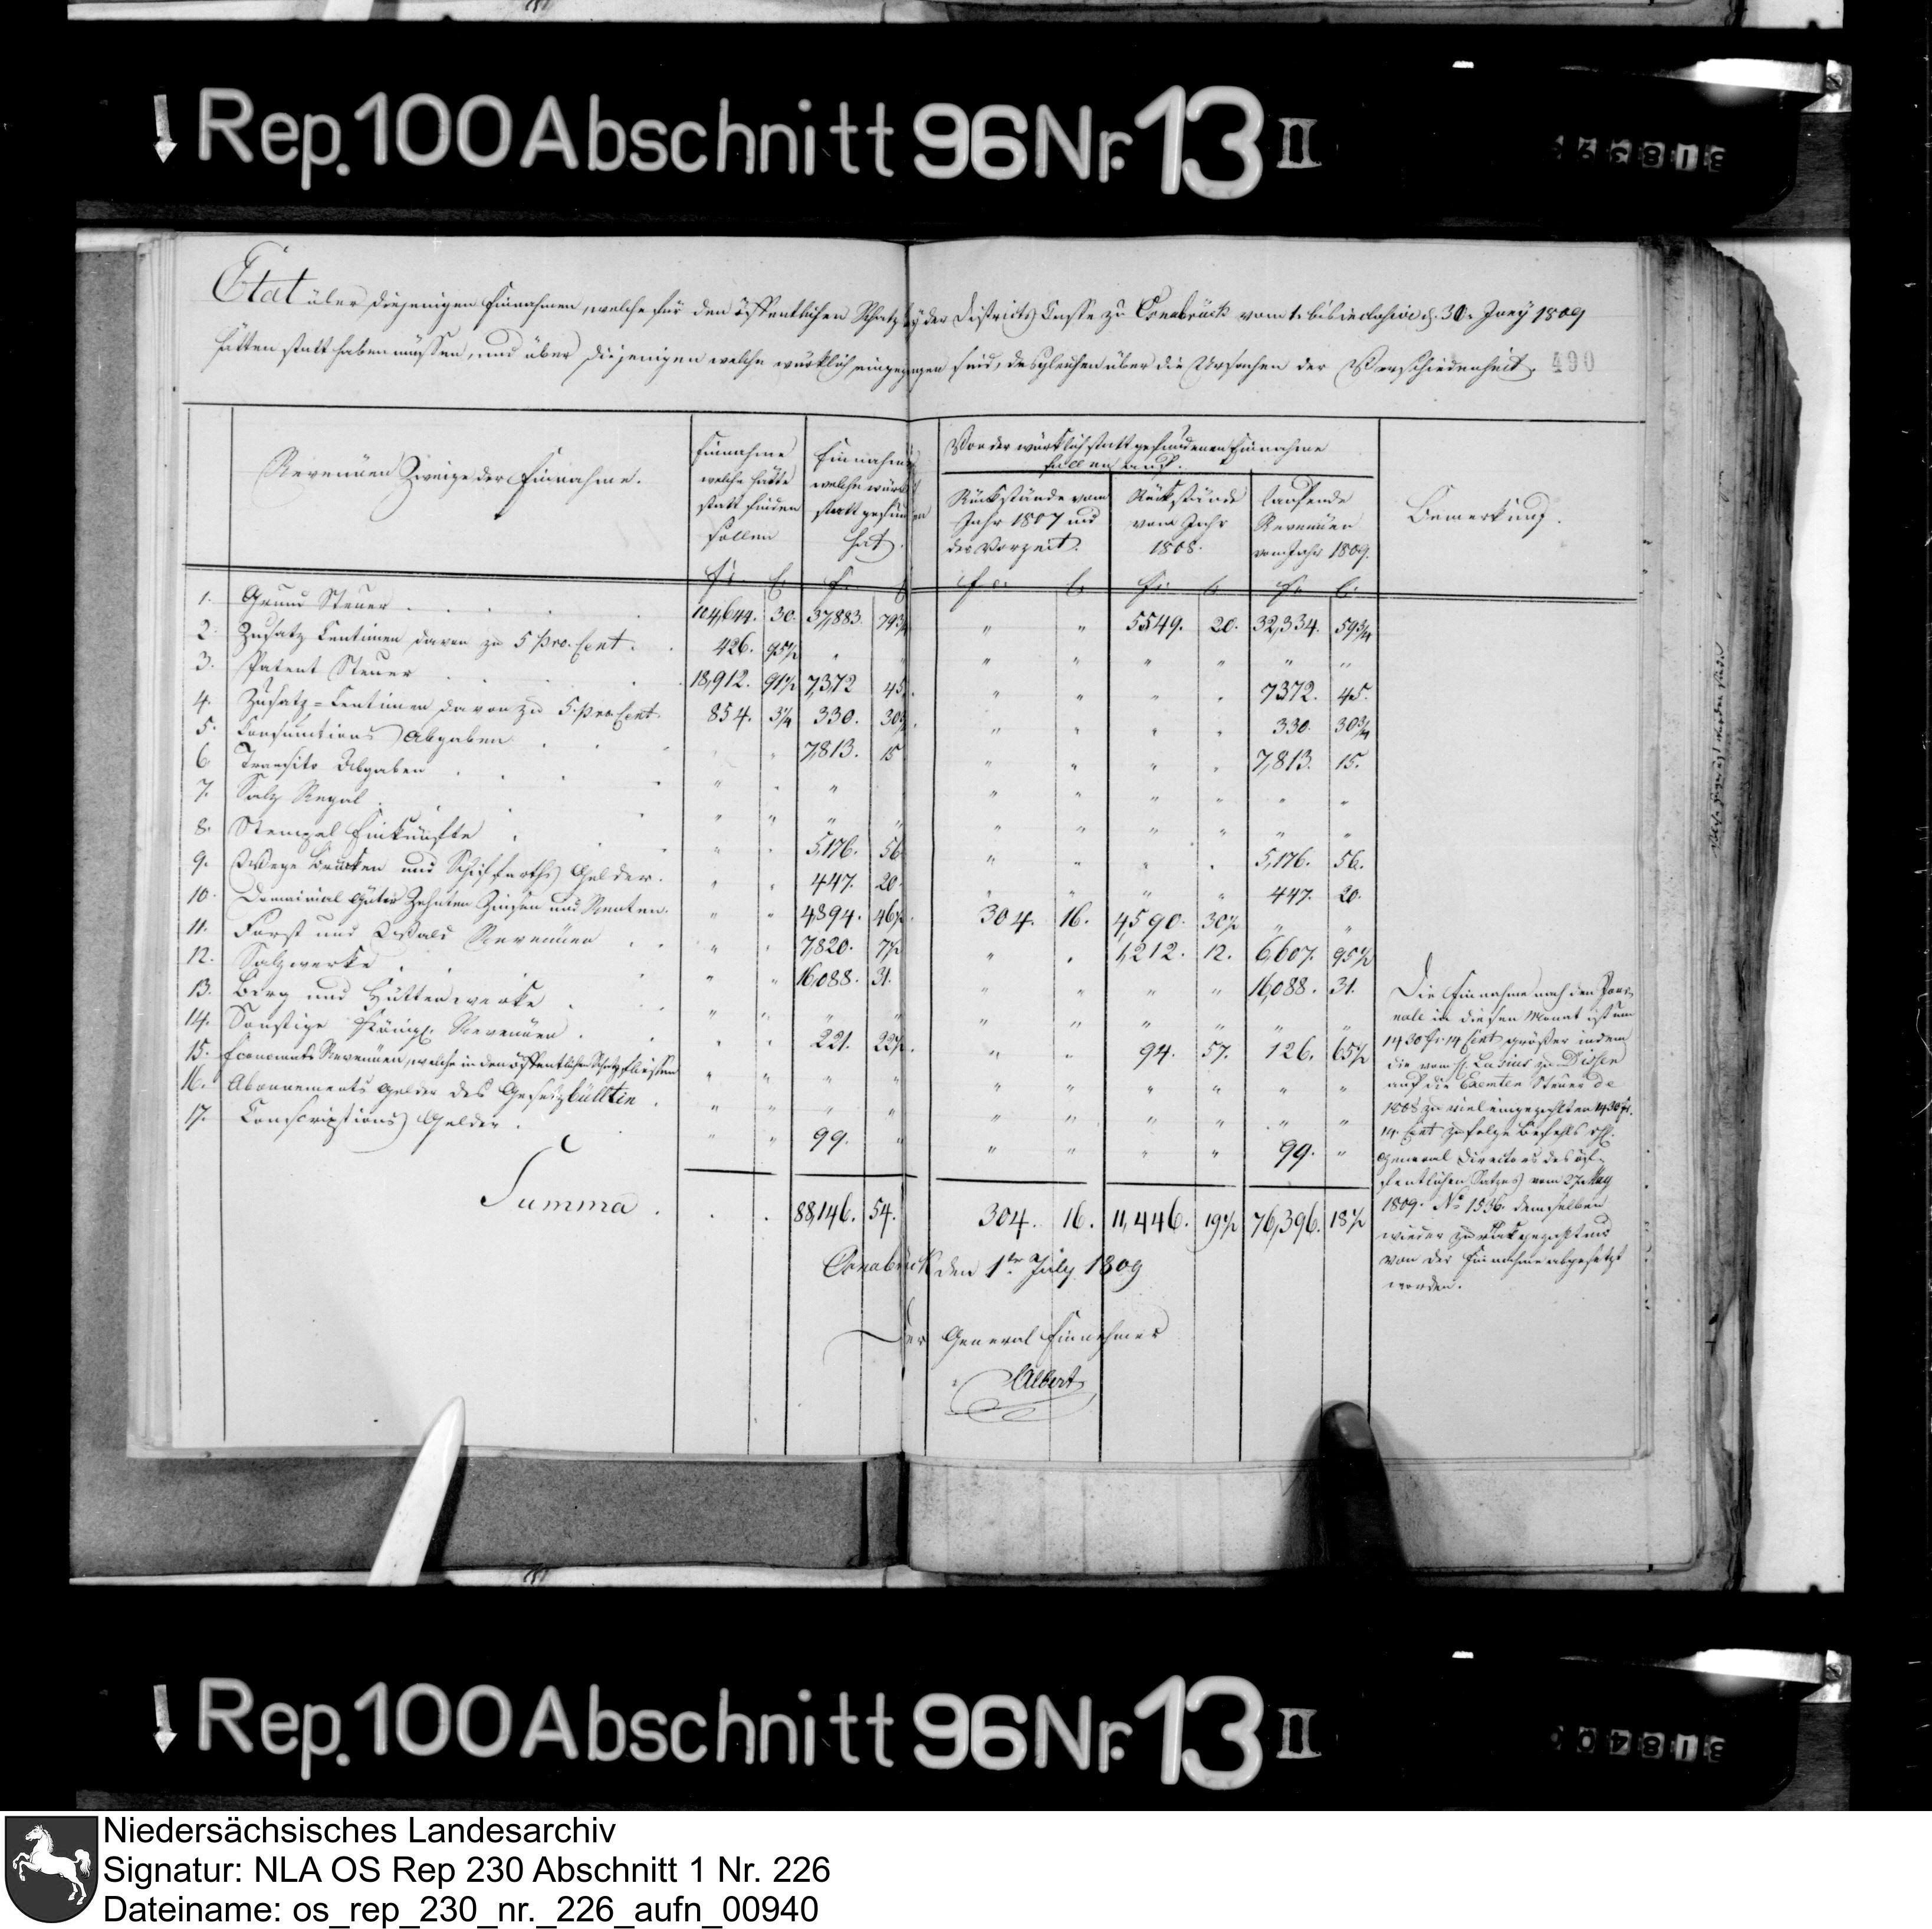 Rep. 100 Abschnitt 96 Nr. 13 II
Etat über diejenigen Einnahmen, welche für den öffentlichen Schatz bey der Districts Casse zu Osnabrück vom 1. bis inclusive d. 30. Juny 1809
hätten statt haben müssen, und über diejenigen welche würklich eingegangen sind, desgleichen über die Ursachen der Verschiedenheit. 490
Revenüen Zweige der Einnahme.
Einnahme
welche hätte
statt finden
sollen
Einnahme
welche würklich
statt gefunden
hat.
Von der würklich statt gefundenen Einnahme
fallen auf.
Rückstände vom
Jahr 1807 und
der Vorzeit.
Rückstände
vom Jahr
1808.
laufende
Revenüen
vom Jahr 1809.
Bemerkung.
fr. C. fr. C. fr. C. fr. C. fr. C.
1. Grund Steuer . . . 104,644. 30. 37,883. 79¾ " " 5549. 20. 32,334. 59¾
2. Zusatz Centimen davon zu 5 pro Cent. 426. 95½ " " " " " " " "
3. Patent Steuer . . . 18,912. 91½ 7,372 45. " " " " 7372. 45.
4. Zusatz-Centimen davon zu 5. pro Cent 854. 3¼ 330. 30¾ " " " " 330. 30¾
5. Consumtions Abgaben . . 7,813. 15 " " " " 7,813. 15.
6. Transito Abgaben . . . " " " " " " " "
7. Salz Regal . . . " " " " " " " "
8. Stempel Einkünfte . . 5,176. 56 " " " " 5,176. 56.
9. Wege Brücken und Schiffarths Gelder. 447. 20. " " " " 447. 20.
10. Domainial Güter Zehnten Zinsen und Renten. 4,894. 46½ 304. 16. 4,590. 30½ " "
11. Forst und Wald Revenüen . . 7,820. 7½ " " 1,212. 12. 6,607. 95½
12. Salzwerke . . . 16,088. 31. " " " " 16,088. 31.
13. Berg und Hüttenwerke . . " " " " " " " "
14. Sonstige Königl. Revenüen . . 221. 22½ " " 94. 57. 126. 65½
15. Economats Revenüen, welche in den öffentlichen Schatz fliessen " " " " " " " "
16. Abonnements Gelder des Gesetzbülltin . " " " " " " " "
17. Conscriptions Gelder . 99. " " " " " 99. "
Summa . . . 88,146. 54. 304. 16. 11,446. 19½ 76,396. 18½
Die Einnahme nach den Jour-
nale in diesen Monat ist um
1430 fr. 14 Cent größer indem
die vom H. Lasius zu Dissen
auf die Exemten Steuer de
1808 zu viel eingezahlten 1430 fr.
14 Cent zufolge Befehls
General Directors des öf-
fentlichen Satzes vom 27. May
1809. No 1536. demselben
wieder zurückgezahlt und
von der Einnahme abgesetzt
worden.
Osnabrück den 1ten July 1809
Der General Einnehmer
Albert
Rep. 100 Abschnitt 96 Nr. 13 II
Niedersächsisches Landesarchiv
Signatur: NLA OS Rep 230 Abschnitt 1 Nr. 226
Dateiname: os_rep_230_nr._226_aufn_00940